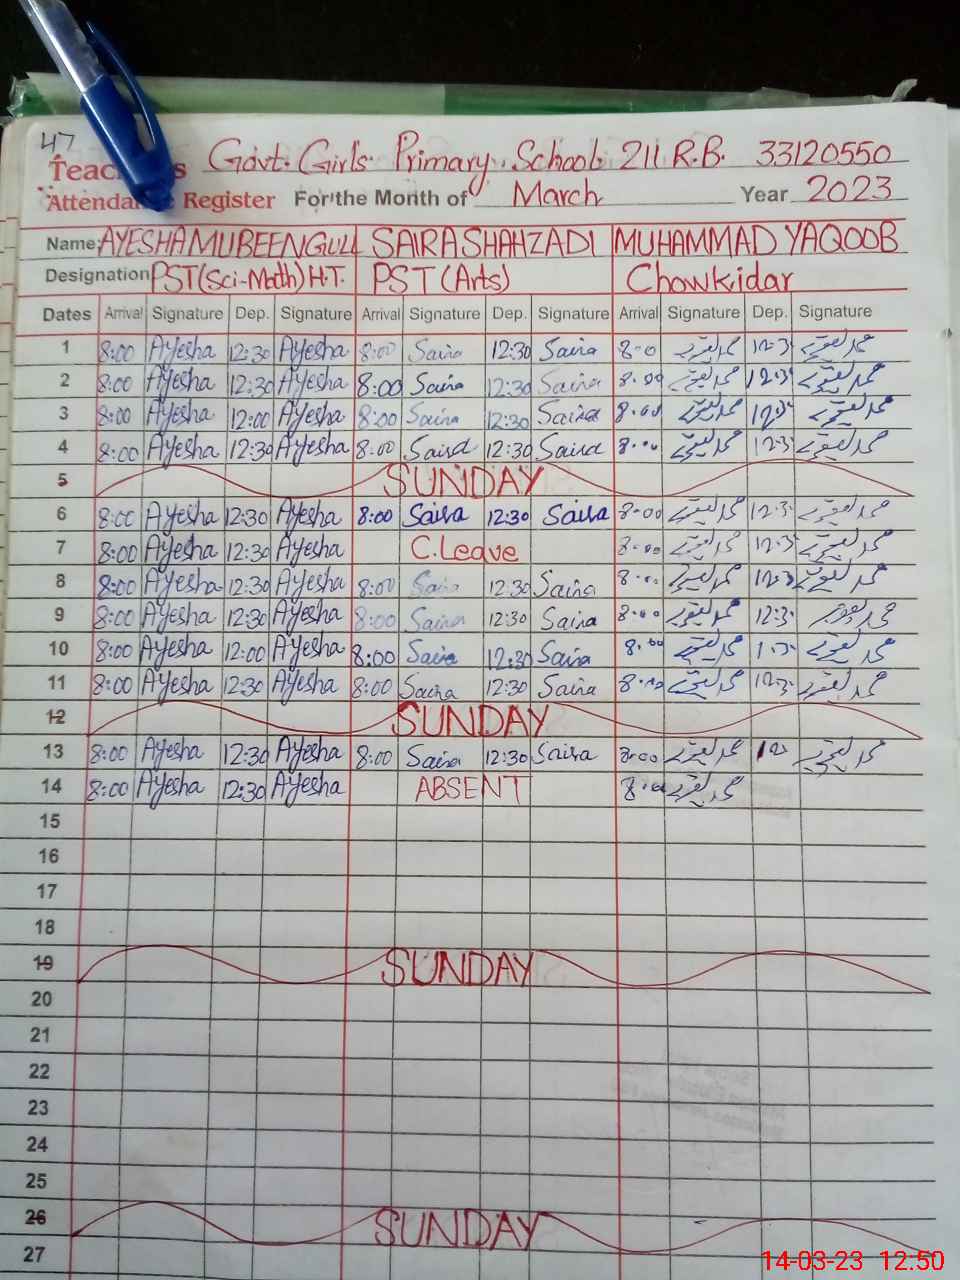 47
Teac s Govt. Girls Primary School 211 R.B. 33120550
Attendance Register For the Month of March Year 2023
Name: AYESHA MUBEEN GULL SAIRA SHAHZADI MUHAMMAD YAQOOB
Designation PST (Sci-Math) H.T. PST (Arts) Chowkidar
Dates Arrival Signature Dep. Signature Arrival Signature Dep. Signature Arrival Signature Dep. Signature
1 8:00 Ayesha 12:30 Ayesha 8:00 Saira 12:30 Saira 8:0 محمد یعقوب 12:3 محمد یعقوب
2 8:00 Ayesha 12:30 Ayesha 8:00 Saira 12:30 Saira 8:00 محمد یعقوب 12:3 محمد یعقوب
3 8:00 Ayesha 12:00 Ayesha 8:00 Saira 12:30 Saira 8:00 محمد یعقوب محمد یعقوب
4 8:00 Ayesha 12:30 Ayesha 8:00 Saira 12:30 Saira 8:00 محمد یعقوب 12:3 محمد یعقوب
5 SUNDAY
6 8:00 Ayesha 12:30 Ayesha 8:00 Saira 12:30 Saira 8:00 محمد یعقوب 12:3 محمد یعقوب
7 8:00 Ayesha 12:30 Ayesha C.Leave 8:00 محمد یعقوب 12:3 محمد یعقوب
8 8:00 Ayesha 12:30 Ayesha 8:00 Saira 12:30 Saira 8:00 محمد یعقوب 12:3 محمد یعقوب
9 8:00 Ayesha 12:30 Ayesha 8:00 Saira 12:30 Saira 8:00 محمد یعقوب 12:3 محمد یعقوب
10 8:00 Ayesha 12:00 Ayesha 8:00 Saira 12:30 Saira 8:00 محمد یعقوب محمد یعقوب
11 8:00 Ayesha 12:30 Ayesha 8:00 Saira 12:30 Saira 8:00 محمد یعقوب 12:3 محمد یعقوب
12 SUNDAY
13 8:00 Ayesha 12:30 Ayesha 8:00 Saira 12:30 Saira 8:00 محمد یعقوب محمد یعقوب
14 8:00 Ayesha 12:30 Ayesha ABSENT 8:00 محمد یعقوب
15
16
17
18
19 SUNDAY
20
21
22
23
24
25
26 SUNDAY
27
14-03-23 12:50